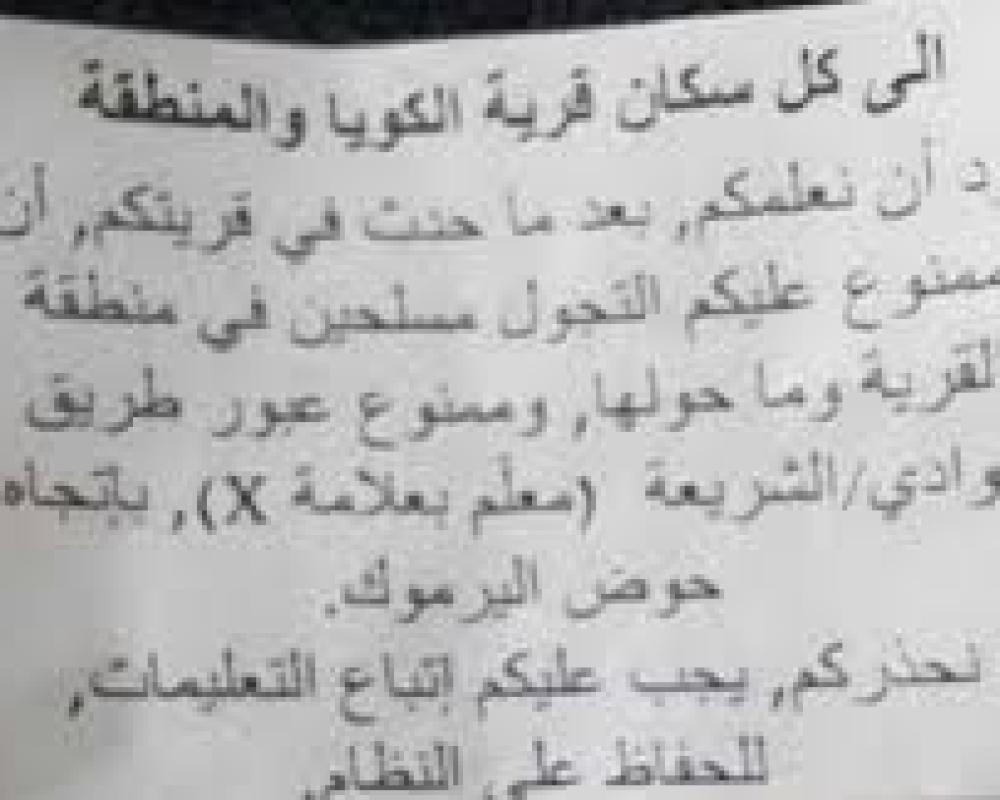 الى كل سكان قرية الكويا والمنطقة
د أن نعلمكم, بعد ما حدث في قريتكم, أن
ممنوع عليكم التجول مسلحين في منطقة
لقرية وما حولها, وممنوع عبور طريق
وادي/الشريعة (معلّم بعلامة X), بإتجاه
حوض اليرموك.
نحذركم, يجب عليكم إتباع التعليمات,
للحفاظ على النظام.